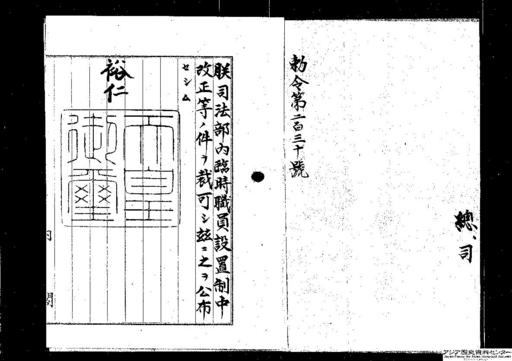 總、司
勅令第二百三十號
朕司法部內臨時職員設置制中
改正等ノ件ヲ裁可シ茲ニ之ヲ公布
セシム
裕仁
天皇
御璽
內
閣
アジア歴史資料センター